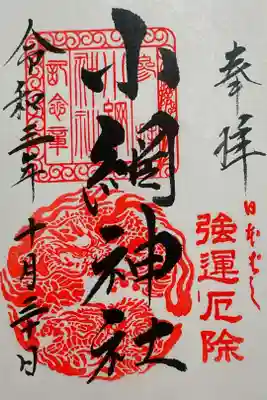 奉拝
日本ばし
強運厄除
小網神社
参拝
小網
神社
記念章
令和三年十月三十日